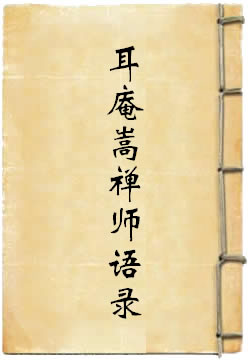 耳庵嵩禅师语录